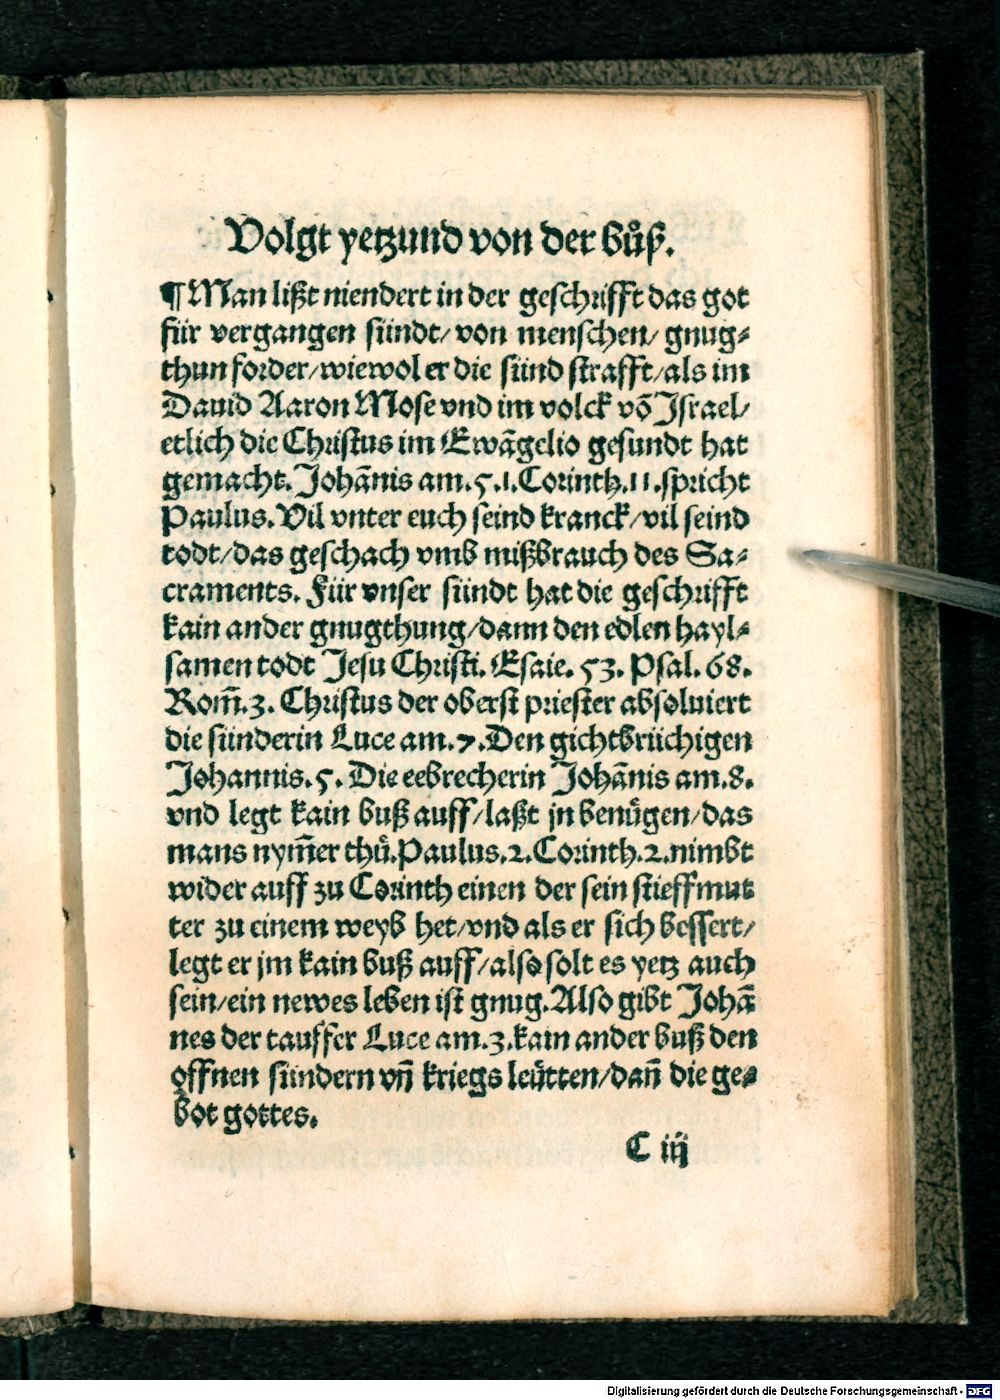 Volgt yetzund von der bůß.
¶ Man lißt niendert in der geschrifft das got
für vergangen sündt/ von menschen/ gnug⸗
thun forder/ wiewol er die sünd strafft/ als im
Dauid Aaron Mose vnd im volck vō Jsrael/
etlich die Christus im Ewāgelio gesundt hat
gemacht. Johānis am. 5. 1. Corinth. 11. spricht
Paulus. Vil vnter euch seind kranck/ vil seind
todt/ das geschach vmb mißbrauch des Sa⸗
craments. Für vnser sündt hat die geschrifft
kain ander gnugthung/ dann den edlen hayl⸗
samen todt Jesu Christi. Esaie. 53. Psal. 68.
Rom̄. 3. Christus der oberst priester absoluiert
die sünderin Luce am. 7. Den gichtbrüchigen
Johannis. 5. Die eebrecherin Johānis am. 8.
vnd legt kain buß auff/ laßt jn benůgen/ das
mans nym̄er thů. Paulus. 2. Corinth. 2. nimbt
wider auff zu Corinth einen der sein stieffmut
ter zu einem weyb het/ vnd als er sich bessert/
legt er jm kain buß auff/ also solt es yetz auch
sein/ ein newes leben ist gnug. Also gibt Johā
nes der tauffer Luce am. 3. kain ander buß den
offnen sündern vn̄ kriegs leütten/ dan̄ die ge⸗
bot gottes.
C iij
Digitalisierung gefördert durch die Deutsche Forschungsgemeinschaft - DFG